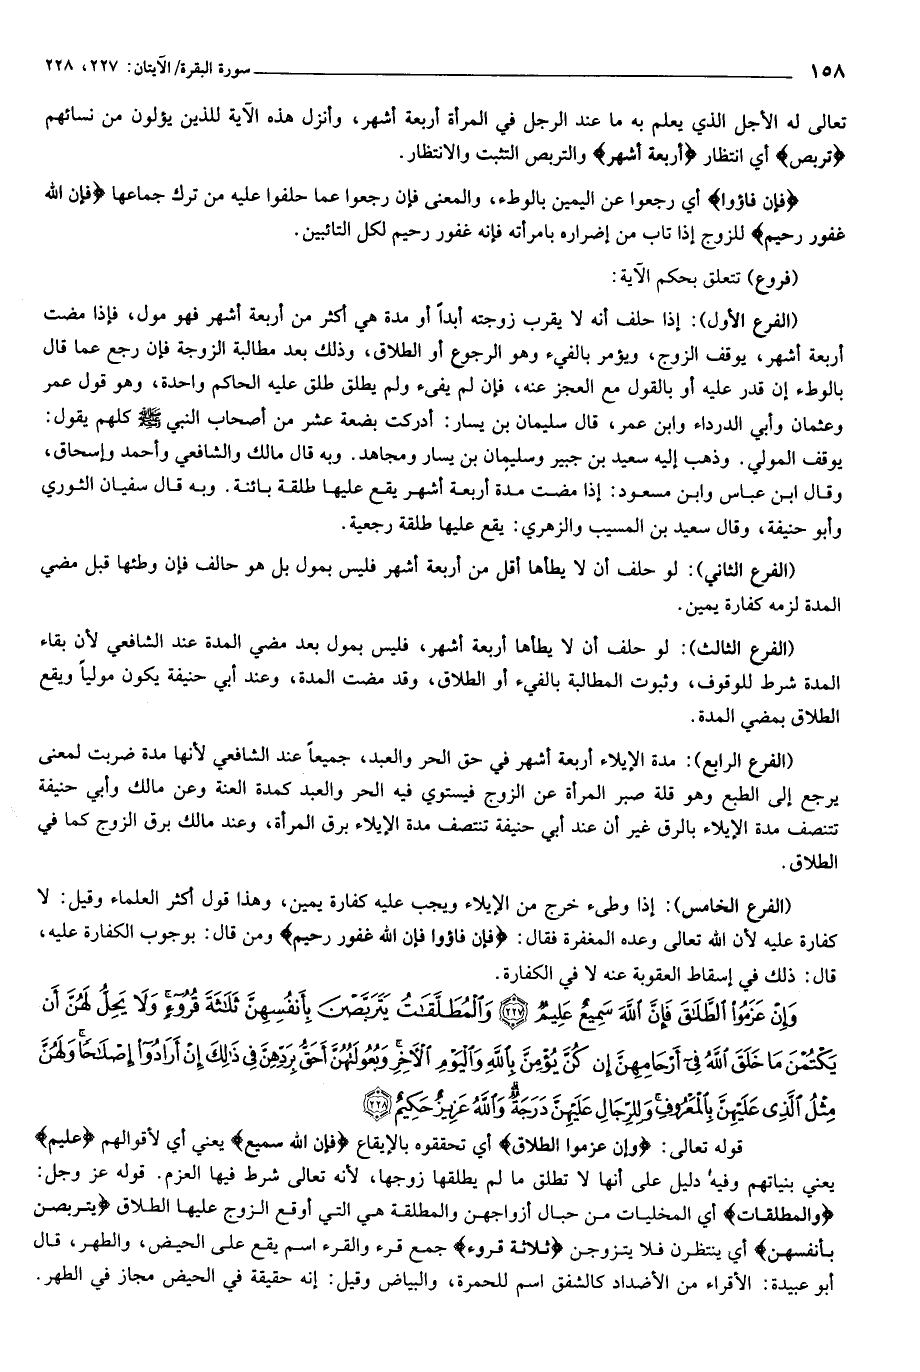 ١٥٨ ــــــــــــــــــــــــــــــــ سورة البقرة/ الآيتان: ٢٢٧، ٢٢٨
تعالى له الأجل الذي يعلم به ما عند الرجل في المرأة أربعة أشهر، وأنزل هذه الآية للذين يؤلون من نسائهم
﴿تربص﴾ أي انتظار ﴿أربعة أشهر﴾ والتربص التثبت والانتظار.
﴿فإن فاؤوا﴾ أي رجعوا عن اليمين بالوطء، والمعنى فإن رجعوا عما حلفوا عليه من ترك جماعها ﴿فإن الله
غفور رحيم﴾ للزوج إذا تاب من إضراره بامرأته فإنه غفور رحيم لكل التائبين.
(فروع) تتعلق بحكم الآية:
(الفرع الأول): إذا حلف أنه لا يقرب زوجته أبداً أو مدة هي أكثر من أربعة أشهر فهو مول، فإذا مضت
أربعة أشهر، يوقف الزوج، ويؤمر بالفيء وهو الرجوع أو الطلاق، وذلك بعد مطالبة الزوجة فإن رجع عما قال
بالوطء إن قدر عليه أو بالقول مع العجز عنه، فإن لم يفىء ولم يطلق طلق عليه الحاكم واحدة، وهو قول عمر
وعثمان وأبي الدرداء وابن عمر، قال سليمان بن يسار: أدركت بضعة عشر من أصحاب النبي ﷺ كلهم يقول:
يوقف المولي. وذهب إليه سعيد بن جبير وسليمان بن يسار ومجاهد. وبه قال مالك والشافعي وأحمد وإسحاق،
وقال ابن عباس وابن مسعود: إذا مضت مدة أربعة أشهر يقع عليها طلقة بائنة. وبه قال سفيان الثوري
وأبو حنيفة، وقال سعيد بن المسيب والزهري: يقع عليها طلقة رجعية.
(الفرع الثاني): لو حلف أن لا يطأها أقل من أربعة أشهر فليس بمول بل هو حالف فإن وطئها قبل مضي
المدة لزمه كفارة يمين.
(الفرع الثالث): لو حلف أن لا يطأها أربعة أشهر، فليس بمول بعد مضي المدة عند الشافعي لأن بقاء
المدة شرط للوقوف، وثبوت المطالبة بالفيء أو الطلاق، وقد مضت المدة، وعند أبي حنيفة يكون مولياً ويقع
الطلاق بمضي المدة.
(الفرع الرابع): مدة الإيلاء أربعة أشهر في حق الحر والعبد، جميعاً عند الشافعي لأنها مدة ضربت لمعنى
يرجع إلى الطبع وهو قلة صبر المرأة عن الزوج فيستوي فيه الحر والعبد كمدة العنة وعن مالك وأبي حنيفة
تتنصف مدة الإيلاء بالرق غير أن عند أبي حنيفة تنتصف مدة الإيلاء برق المرأة، وعند مالك برق الزوج كما في
الطلاق.
(الفرع الخامس): إذا وطىء خرج من الإيلاء ويجب عليه كفارة يمين، وهذا قول أكثر العلماء وقيل: لا
كفارة عليه لأن الله تعالى وعده المغفرة فقال: ﴿فإن فاؤوا فإن الله غفور رحيم﴾ ومن قال: بوجوب الكفارة عليه،
قال: ذلك في إسقاط العقوبة عنه لا في الكفارة.
وَإِنْ عَزَمُوا۟ ٱلطَّلَـٰقَ فَإِنَّ ٱللَّهَ سَمِيعٌ عَلِيمٌ ﴿٢٢٧﴾ وَٱلْمُطَلَّقَـٰتُ يَتَرَبَّصْنَ بِأَنفُسِهِنَّ ثَلَـٰثَةَ قُرُوٓءٍ ۚ وَلَا يَحِلُّ لَهُنَّ أَن
يَكْتُمْنَ مَا خَلَقَ ٱللَّهُ فِىٓ أَرْحَامِهِنَّ إِن كُنَّ يُؤْمِنَّ بِٱللَّهِ وَٱلْيَوْمِ ٱلْـَٔاخِرِ ۚ وَبُعُولَتُهُنَّ أَحَقُّ بِرَدِّهِنَّ فِى ذَٰلِكَ إِنْ أَرَادُوٓا۟ إِصْلَـٰحًا ۚ وَلَهُنَّ
مِثْلُ ٱلَّذِى عَلَيْهِنَّ بِٱلْمَعْرُوفِ ۚ وَلِلرِّجَالِ عَلَيْهِنَّ دَرَجَةٌ ۗ وَٱللَّهُ عَزِيزٌ حَكِيمٌ ﴿٢٢٨﴾
قوله تعالى: ﴿وإن عزموا الطلاق﴾ أي تحققوه بالإيقاع ﴿فإن الله سميع﴾ يعني أي لأقوالهم ﴿عليم﴾
يعني بنياتهم وفيه دليل على أنها لا تطلق ما لم يطلقها زوجها، لأنه تعالى شرط فيها العزم. قوله عز وجل:
﴿والمطلقات﴾ أي المخليات من حبال أزواجهن والمطلقة هي التي أوقع الزوج عليها الطلاق ﴿يتربصن
بأنفسهن﴾ أي ينتظرن فلا يتزوجن ﴿ثلاثة قروء﴾ جمع قرء والقرء اسم يقع على الحيض، والطهر، قال
أبو عبيدة: الأقراء من الأضداد كالشفق اسم للحمرة، والبياض وقيل: إنه حقيقة في الحيض مجاز في الطهر.